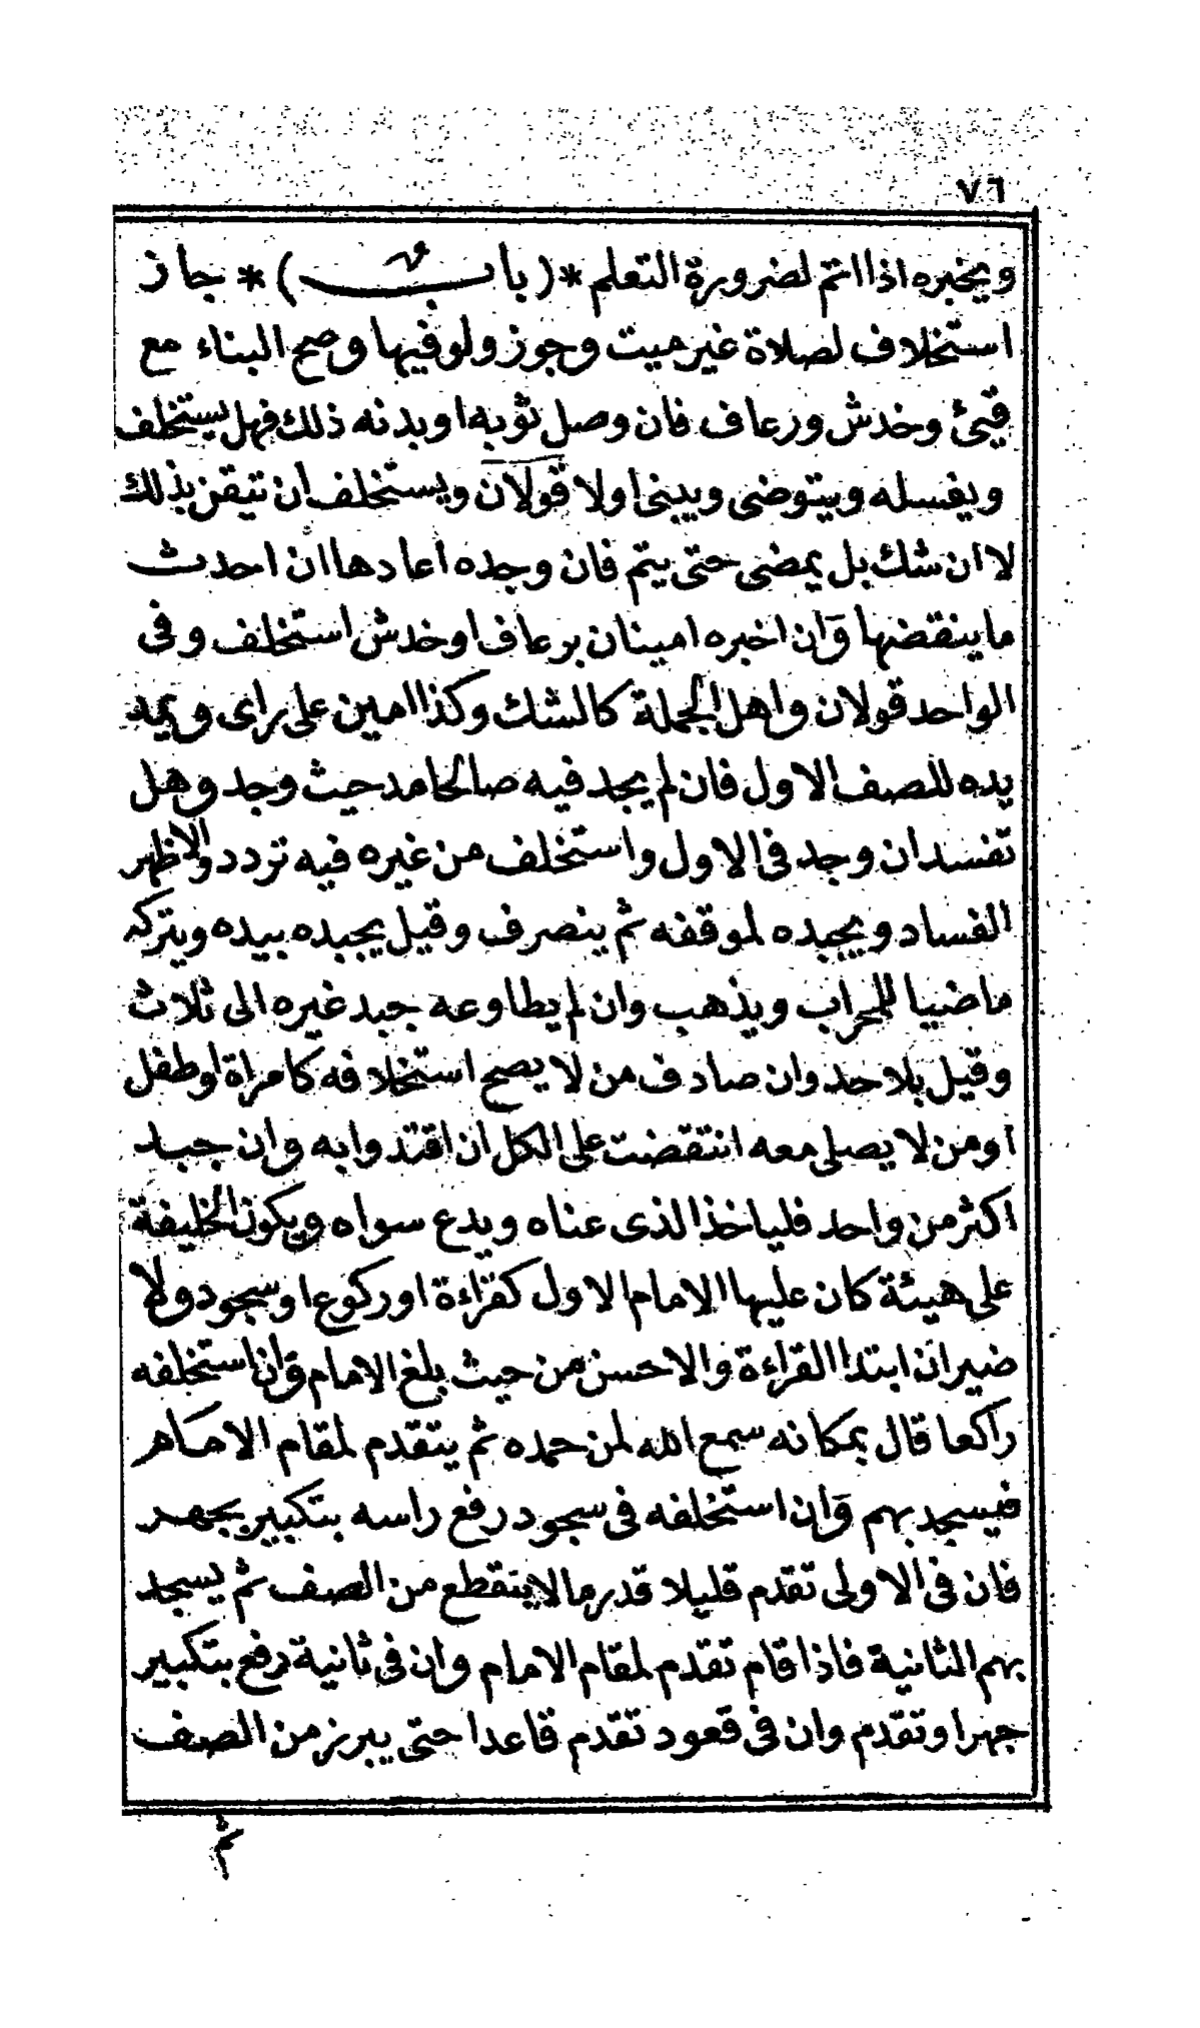 ٧٦
ويخبره اذا اتم لضرورة التعلم *(باب)* جاز
استخلاف لصلاة غير ميت وجوز ولو فيها وصح البناء مع
قيئ وخدش ورعاف فان وصل ثوبه او بدنه ذلك فهل يستخلف
ويغسله ويتوضى ويبنى اولا قولان ويستخلف ان تيقن بذلك
لا ان شك بل يمضى حتى يتم فان وجده اعادها ان احدث
ما ينقضها وان اخبره امينان برعاف او خدش استخلف وفى
الواحد قولان واهل الجملة كالشك وكذا امين على راى ويمد
يده للصف الاول فان لم يجد فيه صالحا مد حيث وجد وهل
تفسد ان وجد فى الاول واستخلف من غيره فيه تردد والاظهر
الفساد ويجبده لموقفه ثم ينصرف وقيل يجبده بيده ويتركه
ماضيا للمحراب ويذهب وان لم يطاوعه جبد غيره الى ثلاث
وقيل بلا حد وان صادف من لا يصح استخلافه كامراة او طفل
او من لا يصلى معه انتقضت على الكل ان اقتدوا به وان جبد
اكثر من واحد فلياخذ الذى عناه ويدع سواه ويكون الخليفة
على هيئة كان عليها الامام الاول كقراءة او ركوع او سجود ولا
ضير ان ابتدا القراءة والاحسن من حيث بلغ الامام وان استخلفه
راكعا قال بمكانه سمع الله لمن حمده ثم يتقدم لمقام الامام
فيسجد بهم وان استخلفه فى سجود رفع راسه بتكبير بجهر
فان فى الاولى تقدم قليلا قدر ما لا ينقطع من الصف ثم يسجد
بهم الثانية فاذا قام تقدم لمقام الامام وان فى ثانية رفع بتكبير
جهرا وتقدم وان فى قعود تقدم قاعدا حتى يبرز من الصف
ثم